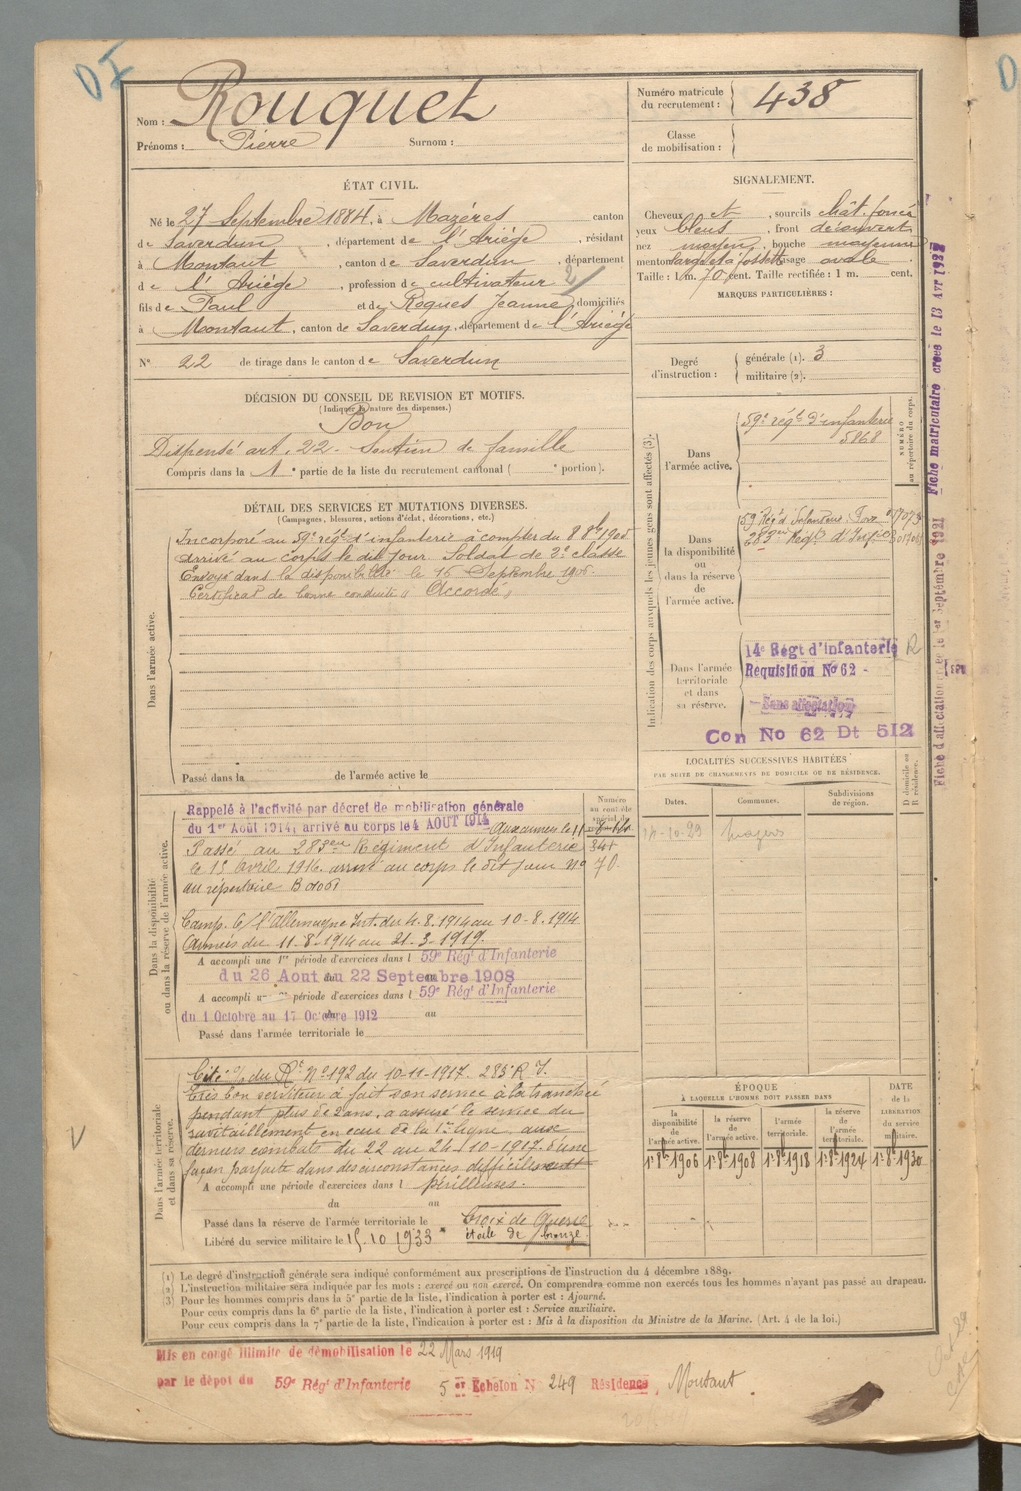 Nom : Rouquet
Prénoms : Pierre Surnom :
Numéro matricule du recrutement : 438
Classe de mobilisation :
ÉTAT CIVIL.
Né le 27 Septembre 1884, à Mazères canton
de Saverdun, département de l'Ariège, résidant
à Montaut, canton de Saverdun, département
de l'Ariège, profession de cultivateur 2/
fils de Paul et de Roques Jeanne, domiciliés
à Montaut, canton de Saverdun, département de l'Ariège
SIGNALEMENT.
Cheveux et, sourcils chât. foncé
yeux bleus, front découvert
nez moyen, bouche moyenne
menton à fossette visage ovale
Taille : 1 m. 70 cent. Taille rectifiée : 1 m. cent.
MARQUES PARTICULIÈRES :
N° 22 de tirage dans le canton de Saverdun
Degré d'instruction :
générale (1). 3
militaire (2).
DÉCISION DU CONSEIL DE REVISION ET MOTIFS.
(Indiquer la nature des dispenses.)
Bon
Dispensé art. 22 - Soutien de famille
Compris dans la 1e partie de la liste du recrutement cantonal ( e portion).
DÉTAIL DES SERVICES ET MUTATIONS DIVERSES.
(Campagnes, blessures, actions d'éclat, décorations, etc.)
Dans l'armée active.
Incorporé au 59e régt d'infanterie à compter du 8 8bre 1905
arrivé au corps le dit jour. Soldat de 2e classe
Envoyé dans la disponibilité le 15 Septembre 1906.
Certificat de bonne conduite « Accordé »
Passé dans la de l'armée active le
Indication des corps auxquels les jeunes gens sont affectés (3).
NUMÉRO au répertoire du corps.
Dans l'armée active.
59e régt d'infanterie
5868
Dans la disponibilité ou dans la réserve de l'armée active.
59 Régt d'Infanterie
283eme Régt d'Inf
Dans l'armée territoriale et dans sa réserve.
14e Régt d'Infanterie R
Requisition No 62 -
Sans affectation
Con No 62 Dt 512
LOCALITÉS SUCCESSIVES HABITÉES
PAR SUITE DE CHANGEMENTS DE DOMICILE OU DE RÉSIDENCE.
Dates. Communes. Subdivisions de région. D domicile ou R résidence.
14-10-29 Mazères
Dans la disponibilité ou dans la réserve de l'armée active.
Rappelé à l'activité par décret de mobilisation générale
du 1er Août 1914, arrivé au corps le 4 AOUT 1914 Aux armées le 11
Passé au 283eme Régiment d'Infanterie
le 15 Avril 1916. arrivé au corps le dit jour No 70
au répertoire
Camp. C/ l'Allemagne Int. du 4.8.1914 au 10-8.1914
Armées du 11-8-1914 au 21-3-1919.
A accompli une 1re période d'exercices dans l 59e Régt d'Infanterie
du 26 Aout au 22 Septembre 1908
A accompli une période d'exercices dans l 59e Régt d'Infanterie
du 1 Octobre au 17 Octobre 1912 au
Passé dans l'armée territoriale le
Dans l'armée territoriale et dans sa réserve.
Cité O/ du Rt No 192 du 10-11-1917. 283e R I.
Très bon serviteur a fait son service à la tranchée
pendant plus de 2 ans, a assuré le service du
ravitaillement en eau de la 1re ligne aux
derniers combats du 22 au 24-10-1917. d'une
façon parfaite dans des circonstances difficiles et
périlleuses.
A accompli une période d'exercices dans l
du au
Passé dans la réserve de l'armée territoriale le
Croix de Guerre
étoile de bronze.
Libéré du service militaire le 15.10 1933
ÉPOQUE À LAQUELLE L'HOMME DOIT PASSER DANS
la disponibilité de l'armée active. la réserve de l'armée active. l'armée territoriale. la réserve de l'armée territoriale. DATE de la LIBÉRATION du service militaire.
1er 8bre 1906 1er 8bre 1908 1er 8bre 1918 1er 8bre 1924 1er 8bre 1930
(1) Le degré d'instruction générale sera indiqué conformément aux prescriptions de l'instruction du 4 décembre 1889.
(2) L'instruction militaire sera indiquée par les mots : exercé ou non exercé. On comprendra comme non exercés tous les hommes n'ayant pas passé au drapeau.
(3) Pour les hommes compris dans la 5e partie de la liste, l'indication à porter est : Ajourné.
Pour ceux compris dans la 6e partie de la liste, l'indication à porter est : Service auxiliaire.
Pour ceux compris dans la 7e partie de la liste, l'indication à porter est : Mis à la disposition du Ministre de la Marine. (Art. 4 de la loi.)
Mis en congé illimité de démobilisation le 22 Mars 1919
par le dépot du 59e Régt d'Infanterie 5er Echelon N° 249 Résidence Montaut
Fiche matriculaire créée le 13 Avr